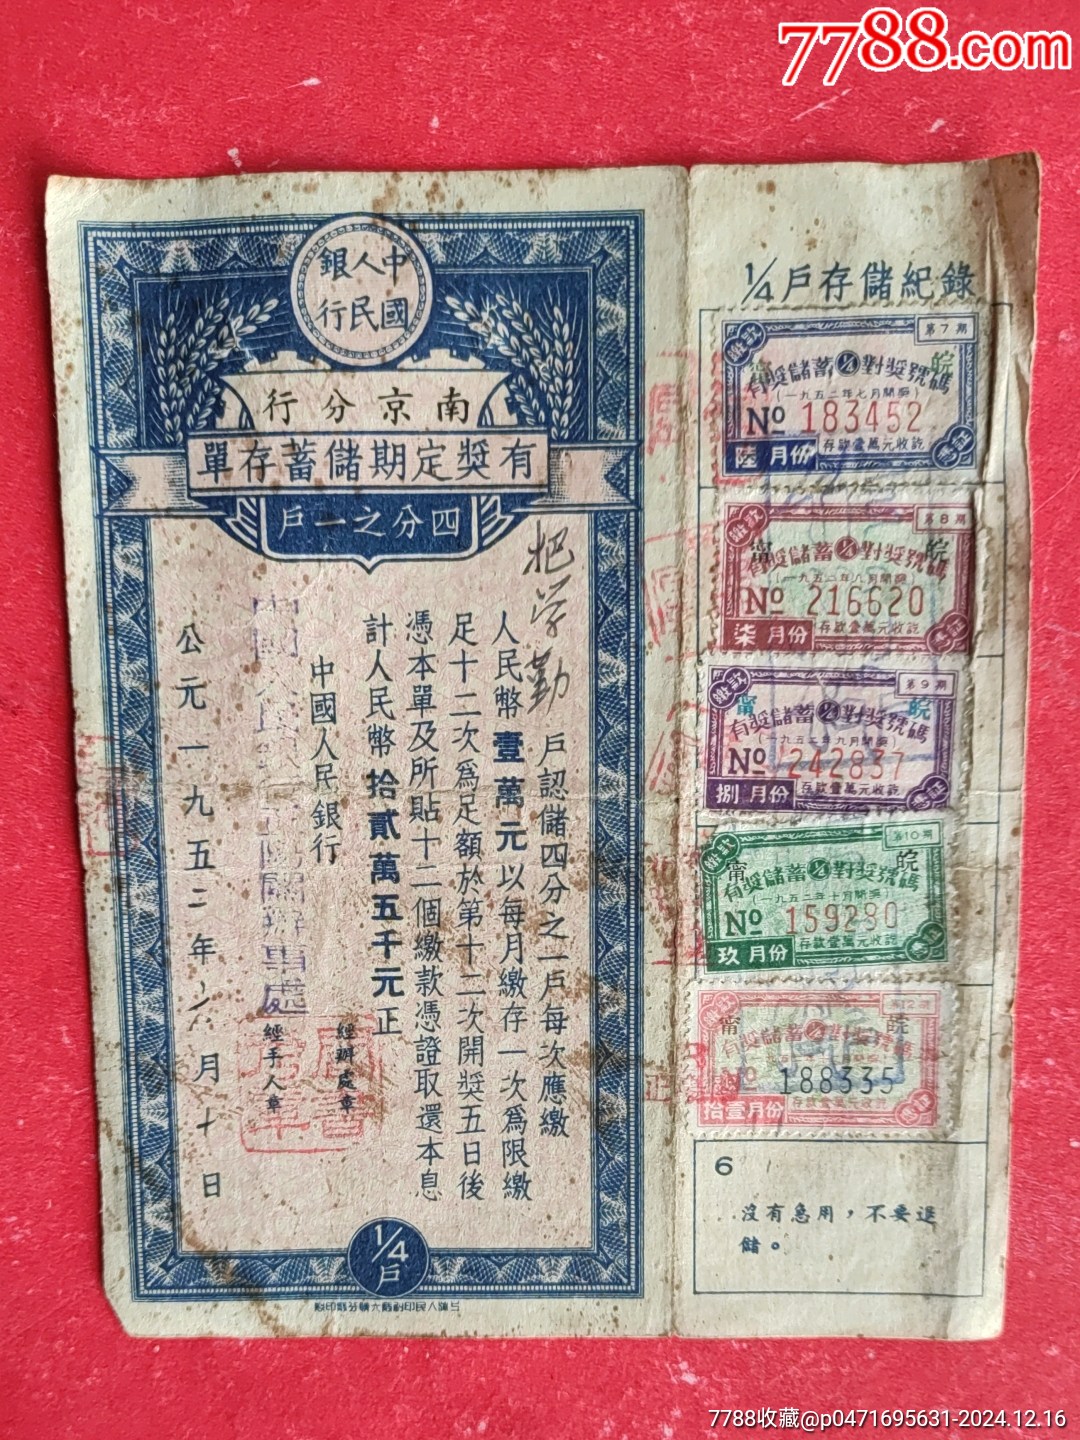 7788.com
中國人民銀行
南京分行
有獎定期儲蓄存單
四分之一戶
戶認儲四分之一戶每次應繳
人民幣壹萬元以每月繳存一次為限繳
足十二次為足額於第十二次開獎五日後
憑本單及所貼十二個繳款憑證取還本息
計人民幣拾貳萬五千元正
中國人民銀行
經辦處章
經手人章
公元一九五二年六月十日
1/4戶
1/4戶存儲紀錄
第7期
繳款
甯 皖
有獎儲蓄1/4對獎號碼
(一九五二年七月開獎)
No 183452
陸月份
存款壹萬元收訖
憑証
第8期
繳款
甯 皖
有獎儲蓄1/4對獎號碼
(一九五二年八月開獎)
No 216620
柒月份
存款壹萬元收訖
憑証
第9期
繳款
甯 皖
有獎儲蓄1/4對獎號碼
(一九五二年九月開獎)
No 242837
捌月份
存款壹萬元收訖
憑証
第10期
繳款
甯 皖
有獎儲蓄1/4對獎號碼
(一九五二年十月開獎)
No 159280
玖月份
存款壹萬元收訖
憑証
第12期
甯 皖
有獎儲蓄1/4對獎號碼
No 188335
拾壹月份
存款壹萬元收訖
憑証
6
沒有急用，不要退
儲。
7788收藏@p0471695631-2024.12.16